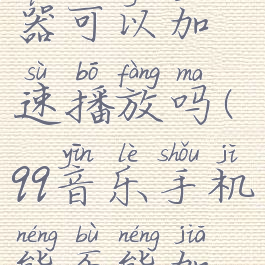 器可以加
sù bō fàng ma
速播放吗(
yīn lè shǒu jī
99音乐手机
néng bù néng jiā
能不能加